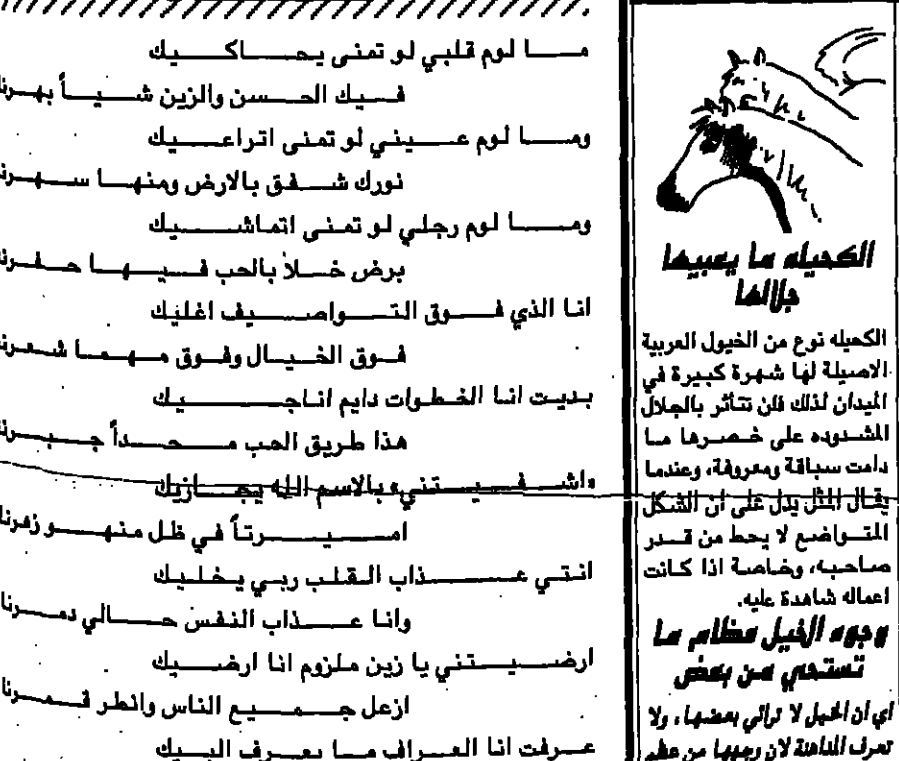 الكحيله ما يعيبها
جلالها
الكحيله نوع من الخيول العربية
الاصيلة لها شهرة كبيرة في
الميدان لذلك فلن تتأثر بالجلال
المشدوده على خصرها ما
دامت سباقة ومعروفة، وعندما
يقال المثل يدل على ان الشكل
المتواضع لا يحط من قدر
صاحبه، وخاصة اذا كانت
اعماله شاهدة عليه.
وجوه الخيل عظام ما
تستحي من بعض
اي ان الخيل لا ترائي بعضها، ولا
تعرف المداهنة لان وجهها من عظم
ما لوم قلبي لو تمنى يحاكيك
فيك الحسن والزين شيأ بهرنا
وما لوم عيني لو تمنى اتراعيك
نورك شفق بالارض ومنها سهرنا
وما لوم رجلي لو تمنى اتماشيك
برض خلا بالحب فيها حفرنا
انا الذي فوق التواصيف اغليك
فوق الخيال وفوق مهما شعرنا
بديت انا الخطوات دايم اناجيك
هذا طريق الحب محداً جبرنا
«اشفيتني» بالاسم الله يجازيك
اميرتاً في ظل منهو زهرنا
انتي عذاب القلب ربي يخليك
وانا عذاب النفس حالي دمرنا
ارضيتني يا زين ملزوم انا ارضيك
ازعل جميع الناس وانطر قمرنا
عرفت انا العراف ما يعرف البيك